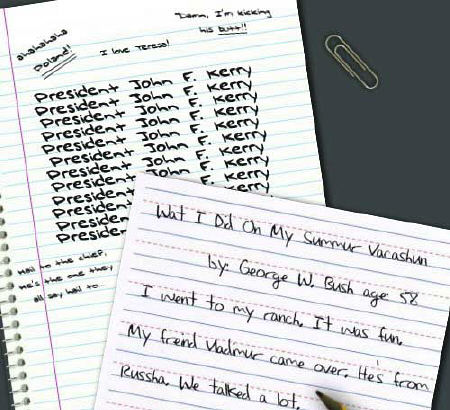 Damn, I'm kicking
his butt!!
ahahahaha
Poland!
I love Teresa!
President John F. Kerry
President John F. Kerry
President John F. Kerry
President John F. Kerry
President John F. Kerry
President John F. Kerry
President John F. Kerry
President John F. Kerry
President Kerry
President
President
President
Hail to the chief,
He's the one they
all say hail to...
Wat I Did On My Summur Vacashun
by: George W. Bush age 58
I went to my ranch. It was fun.
My freind Vladmur came over. He's from
Russha. We talked a lot.